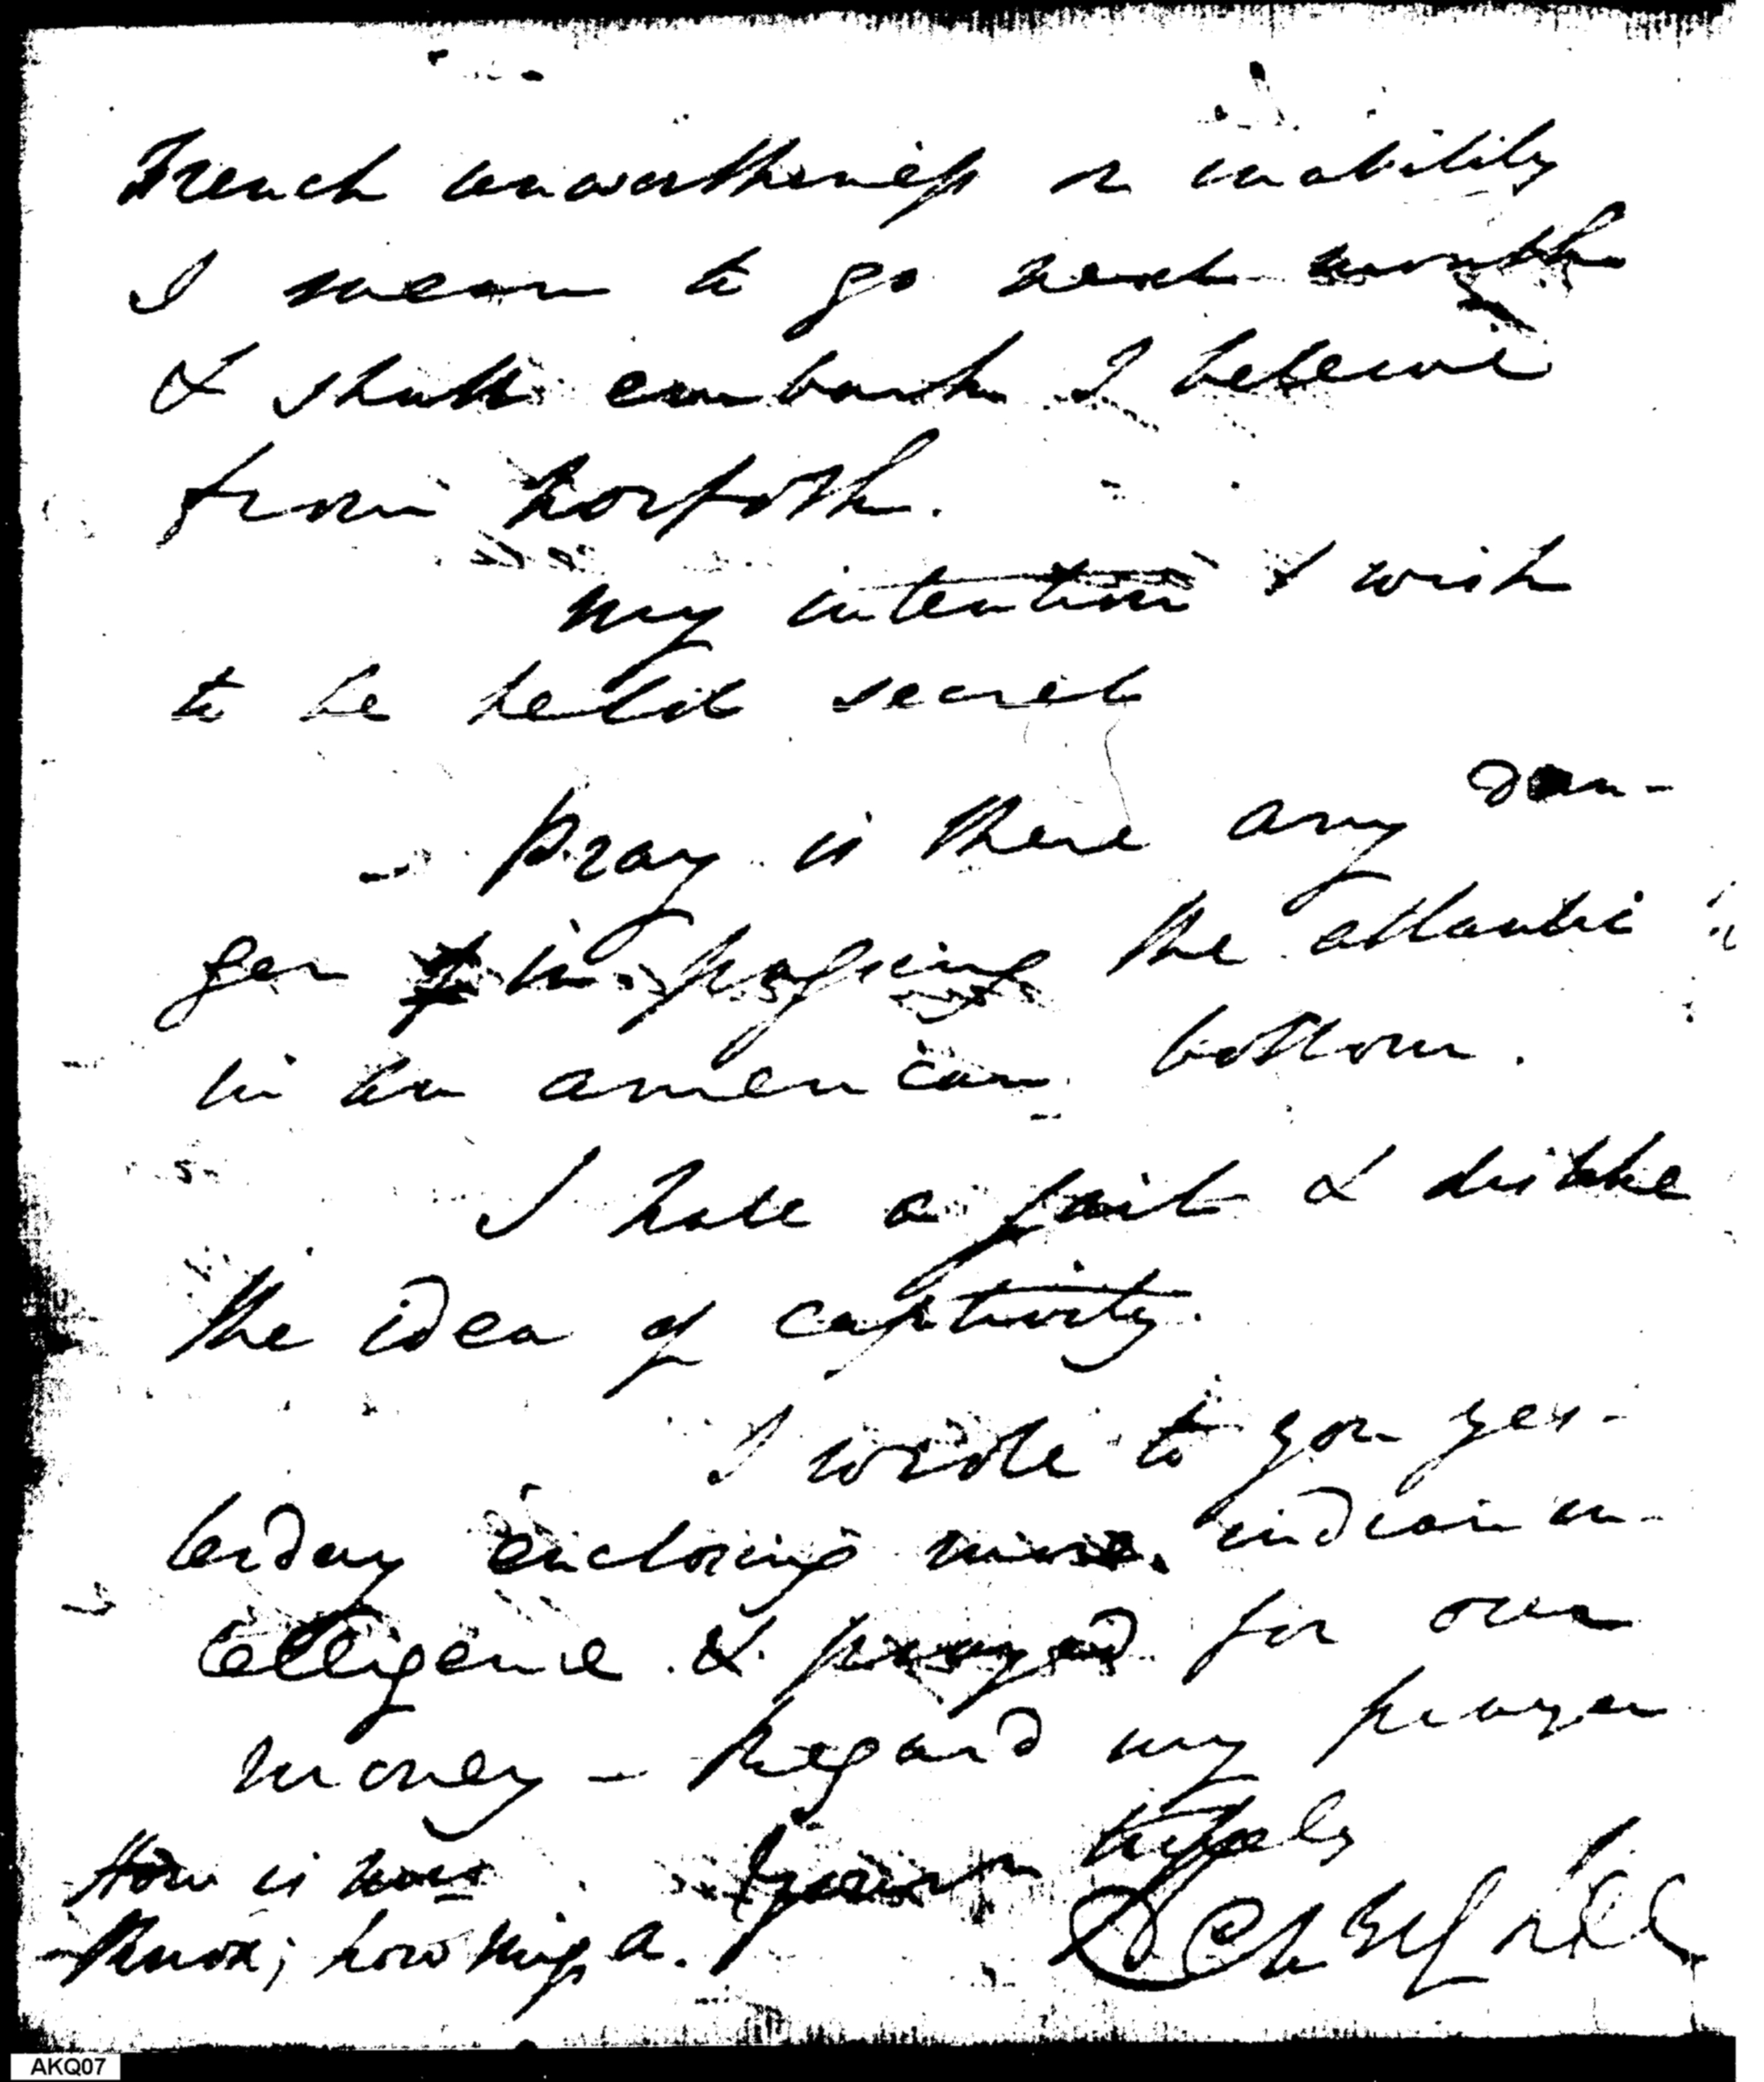 French unworthiness or inability
I mean to go next month
& shall embark I believe
from Norfolk.
my intention I wish
to be held secret
- Pray is there any dan-
ger in passing the atlantic
in an american bottom.
I hate a jail & dislike
the idea of captivity.
I wrote to you yes-
terday enclosing more indian in-
telligence & prayed for our
money - Regard my prayer
truly
How is
Knox; how Miss A.
AKQ07